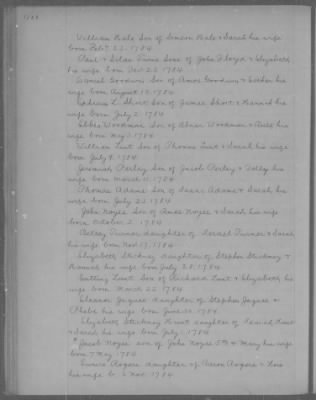 William Hale Son of Simeon Hale & Sarah his wife
born Feb. 23. 1784
Paul & Silas Twins Sons of John Floyd & Elizabeth
his wife born Dec 23. 1784
Daniel Goodwin Son of Amos Goodwin & Esther his
wife born August 19. 1784
L. Short Son of James Short & Hannah his
wife born July 2. 1784
Woodman Son of Abner Woodman & his
wife born May 3. 1784
William Lunt Son of Thomas Lunt & Sarah his wife
born July 9. 1784
Jeremiah Perley Son of Jacob Perley & Dolly his
wife born March 11. 1784
Thomas Adams Son of Isaac Adams & Sarah his
wife born July 23. 1784
John Noyes Son of Amos Noyes & Sarah his wife
born October 2. 1784
Betsey Turner daughter of Israel Turner & Sarah
his wife born Nov. 17. 1784
Elizabeth Stickney daughter of Stephen Stickney &
Hannah his wife born July 28. 1784
Cutting Lunt Son of Richard Lunt & Elizabeth his
wife born March 22. 1784
Eleanor Jaques daughter of Stephen Jaques &
Phebe his wife born June 30. 1784
Elizabeth Stickney Knot daughter of Knot
& Sarah his wife born July 1. 1784
Jacob Noyes son of John Noyes 5th & Mary his wife
born 7 May 1784
Eunice Rogers daughter of Aaron Rogers & Lois
his wife b. 6 Nov. 1784